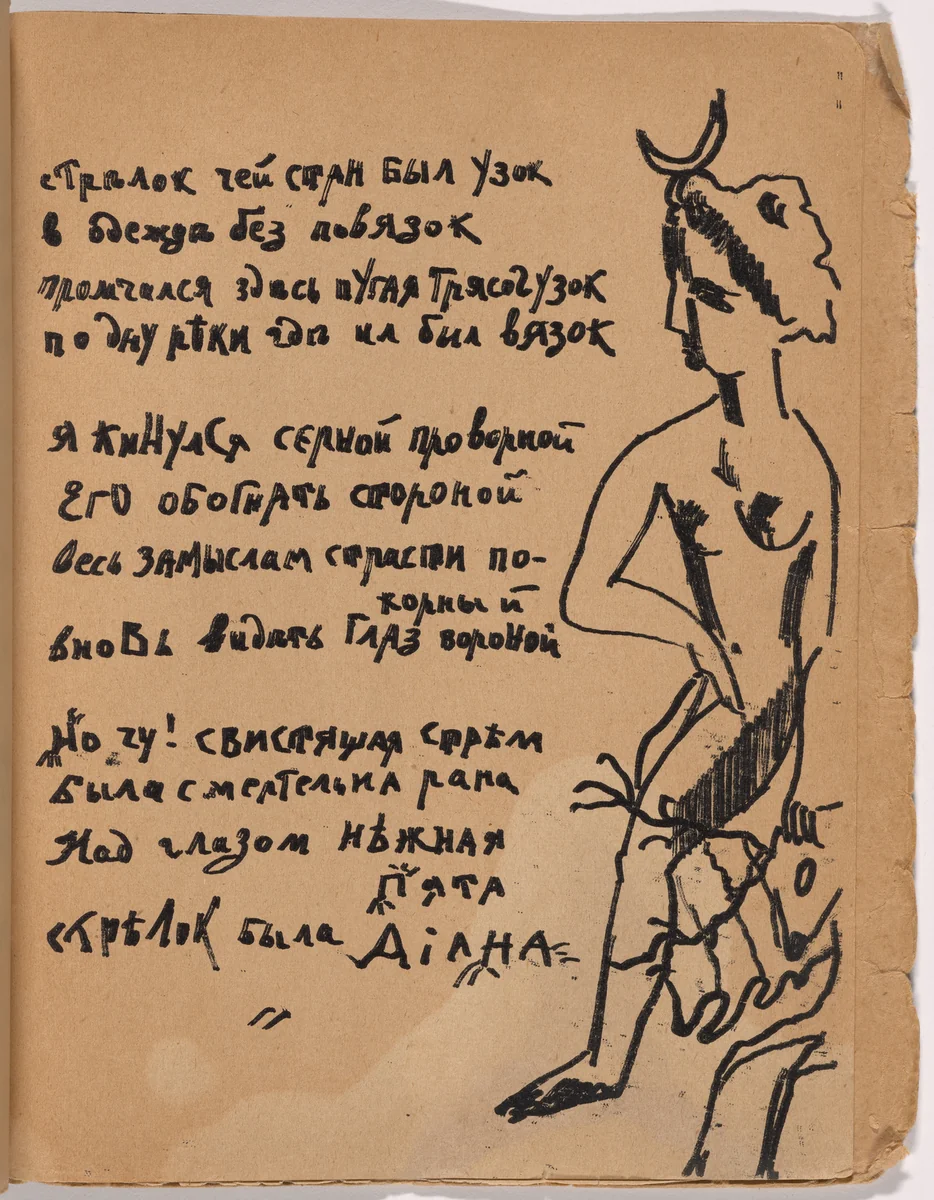 стрѣлок чей стан был узок
в одеждѣ без повязок
промчался здѣсь пугая трясогузок
по дну рѣки гдѣ ил был вязок
я кинулся серной проворной
его обогнать стороной
весь замыслам страсти по-
корный
вновь видѣть глаз вороной
Но чу! свистящая стрѣл
была смертельна рана
Над глазом нѣжная
пята
стрѣлок была Діана